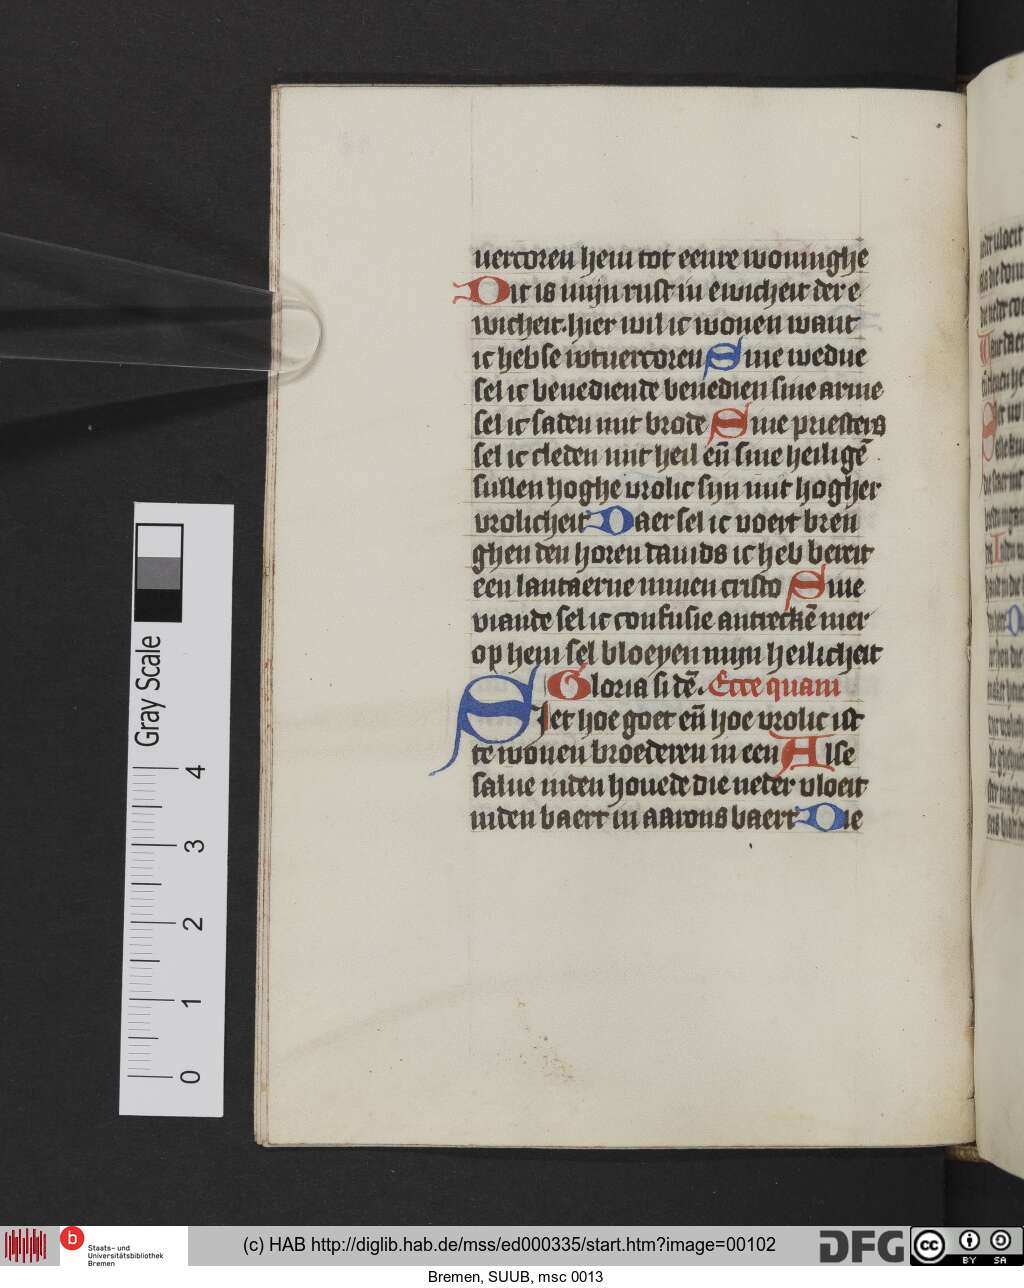 uercoren hem tot eenre woninghe
Dit is mijn rust in ewicheit der e
wicheit. hier wil ic wonen want
ic hebse wtuercoren Sine wedue
sel ic benediende benedien sine arme
sel ic saden mit brode Sine priesters
sel ic cleden mit heil en̄ sine heiligē
sullen hoghe vrolic sijn mit hogher
vrolicheit Daer sel ic voert bren
ghen den horen dauids ic heb bereit
een lantaerne minen cristo Sine
viande sel ic confusie antreckē mer
op hem sel bloeyen mijn heilicheit
Gloria si dē. Ecce quam
Siet hoe goet en̄ hoe vrolic ist
te wonen broederen in een Alse
salue inden houede die neder vloeit
inden baert in aarons baert Die
Gray Scale
4
3
2
1
0
b
Staats- und
Universitätsbibliothek
Bremen
(c) HAB http://diglib.hab.de/mss/ed000335/start.htm?image=00102
DFG
cc
BY SA
Bremen, SUUB, msc 0013